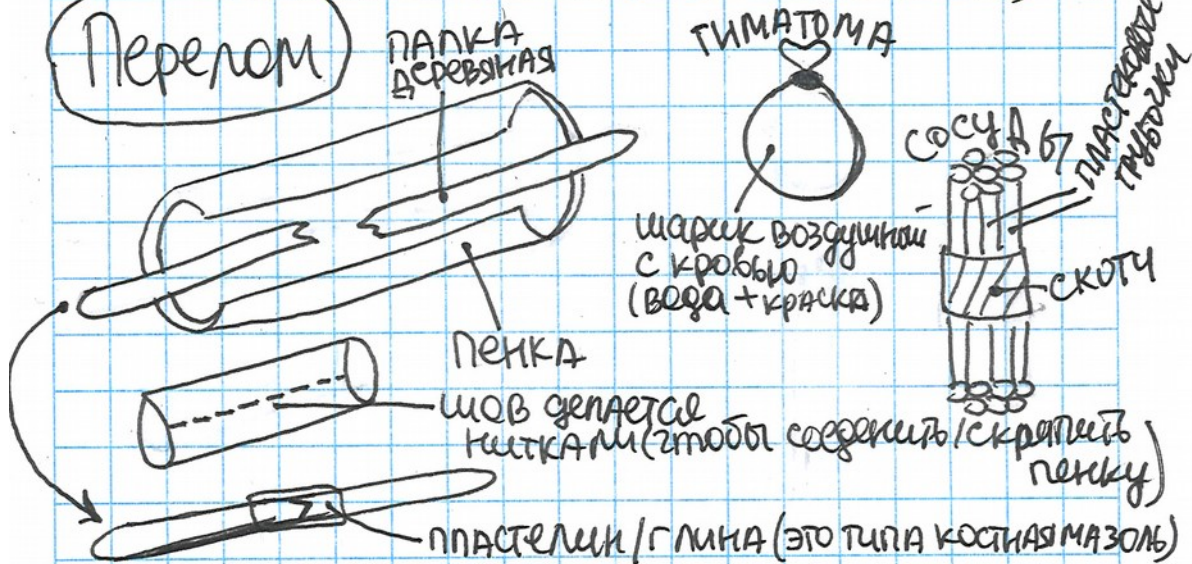 Перелом
ПАЛКА
ДЕРЕВЯНАЯ
ТИМАТОМА
ШАРИК ВОЗДУШНЫЙ
С КРОВЬЮ
(ВОДА + КРАСКА)
СОСУДЫ
ПЛАСТЕКОВЫЕ
ТРУБОЧКИ
СКОТЧ
ПЕНКА
ШОВ ДЕЛАЕТСЯ
НИТКАМИ (ЧТОБЫ СОЕДЕНИТЬ/СКРЯПИТЬ
ПЕНКУ)
ПЛАСТЕЛИН/ГЛИНА (ЭТО ТИПА КОСТНАЯ МАЗОЛЬ)